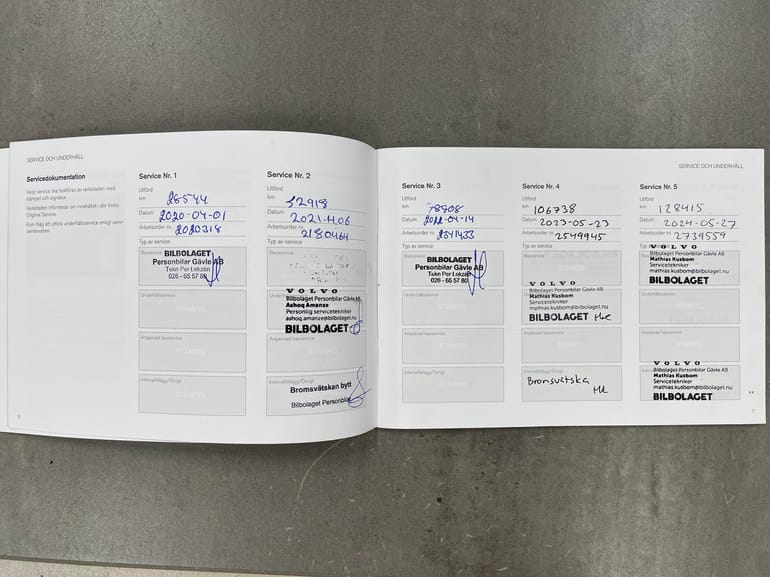 SERVICE OCH UNDERHÅLL
Servicedokumentation
Varje service ska bokföras av verkstaden med
stämpel och signatur.
Verkstaden informerar om innehållet i din Volvo
Original Service.
Kom ihåg att utföra underhållsservice enligt servi-
Service Nr. 1
Utförd
km 26544
Datum 2020-04-01
Arbetsorder nr 2020318
Typ av service
Basservice
BILBOLAGET
Personbilar Gävle AB
Tekn Per Lekzén
026 - 65 57 80
Underhållsservice
STÄMPEL
Anpassad basservice
STÄMPEL
Intervalltillägg/Övrigt
STÄMPEL
Service Nr. 2
Utförd
km 52918
Datum 2021-
Arbetsorder nr 2180464
Typ av service
VOLVO
Bilbolaget Personbilar Gävle AB
Ashoq Amanze
Personlig servicetekniker
ashoq.amanze@bilbolaget.nu
BILBOLAGET
Anpassad basservice
STÄMPEL
Intervalltillägg/Övrigt
Bromsvätskan bytt
Bilbolaget Personbilar
8
SERVICE OCH UNDERHÅLL
Service Nr. 3
Utförd
km 78808
Datum 2022-04-14
Arbetsorder nr 2341433
Typ av service
BILBOLAGET
Personbilar Gävle AB
Tekn Per Lekzén
026 - 65 57 80
Underhållsservice
STÄMPEL
Anpassad basservice
STÄMPEL
Intervalltillägg/Övrigt
STÄMPEL
Service Nr. 4
Utförd
km 106738
Datum 2023-05-23
Arbetsorder nr 2549945
Typ av service
Basservice
VOLVO
Bilbolaget Personbilar Gävle AB
Mathias Kusbom
Servicetekniker
mathias.kusbom@bilbolaget.nu
BILBOLAGET
Anpassad basservice
STÄMPEL
Intervalltillägg/Övrigt
Bromsvätska
Service Nr. 5
Utförd
km 128415
Datum 2024-05-27
Arbetsorder nr 2739559
Typ av service
VOLVO
Bilbolaget Personbilar Gävle AB
Mathias Kusbom
Servicetekniker
mathias.kusbom@bilbolaget.nu
BILBOLAGET
Underhållsservice
STÄMPEL
Anpassad basservice
VOLVO
Bilbolaget Personbilar Gävle AB
Mathias Kusbom
Servicetekniker
mathias.kusbom@bilbolaget.nu
BILBOLAGET